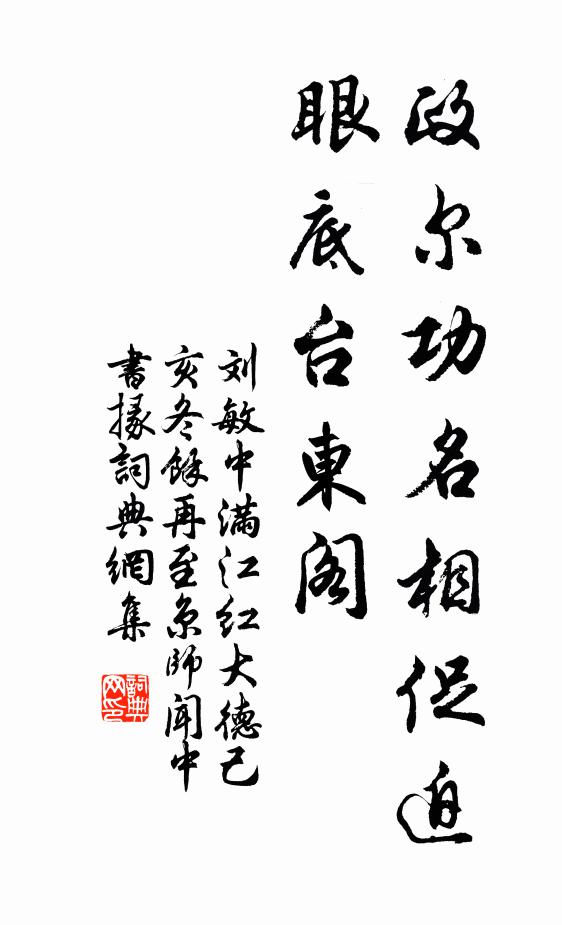 政尔功名相促迫
眼底台東阁
刘敏中满江红大德己
亥冬餘再至京師闻中
書掾詞典網集
詞典
网印